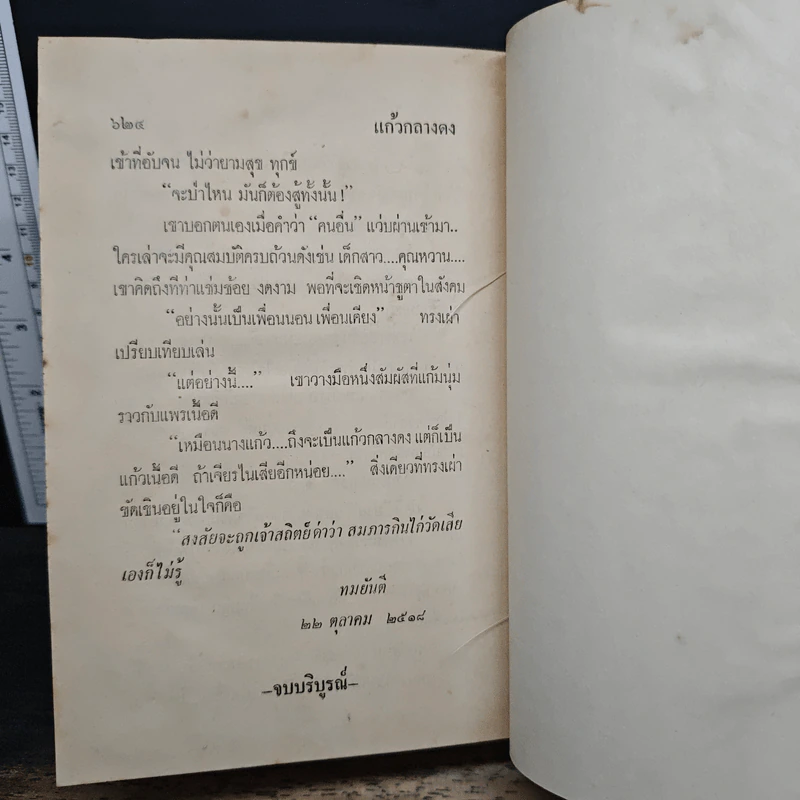 ๖๒๔ แก้วกลางดง
เข้าที่อับจน ไม่ว่ายามสุข ทุกข์
“จะบ้าไหน มันก็ต้องสู้ทั้งนั้น!”
เขาบอกตนเองเมื่อคำว่า “คนอื่น” แว่บผ่านเข้ามา..
ใครเล่าจะมีคุณสมบัติครบถ้วนดังเช่น เด็กสาว....คุณหวาน....
เขาคิดถึงทีท่าแช่มช้อย งดงาม พอที่จะเชิดหน้าชูตาในสังคม
“อย่างนั้นเป็นเพื่อนนอน เพื่อนเคียง” ทรงเผ่า
เปรียบเทียบเล่น
“แต่อย่างนี้....” เขาวางมือหนึ่งสัมผัสที่แก้มนุ่ม
ราวกับแพรเนื้อดี
“เหมือนนางแก้ว....ถึงจะเป็นแก้วกลางดง แต่ก็เป็น
แก้วเนื้อดี ถ้าเจียรไนเสียอีกหน่อย....” สิ่งเดียวที่ทรงเผ่า
ขัดเขินอยู่ในใจก็คือ
“สงสัยจะถูกเจ้าสถิตย์ด่าว่า สมภารกินไก่วัดเสีย
เองก็ไม่รู้
ทมยันตี
๒๒ ตุลาคม ๒๕๑๘
–จบบริบูรณ์–